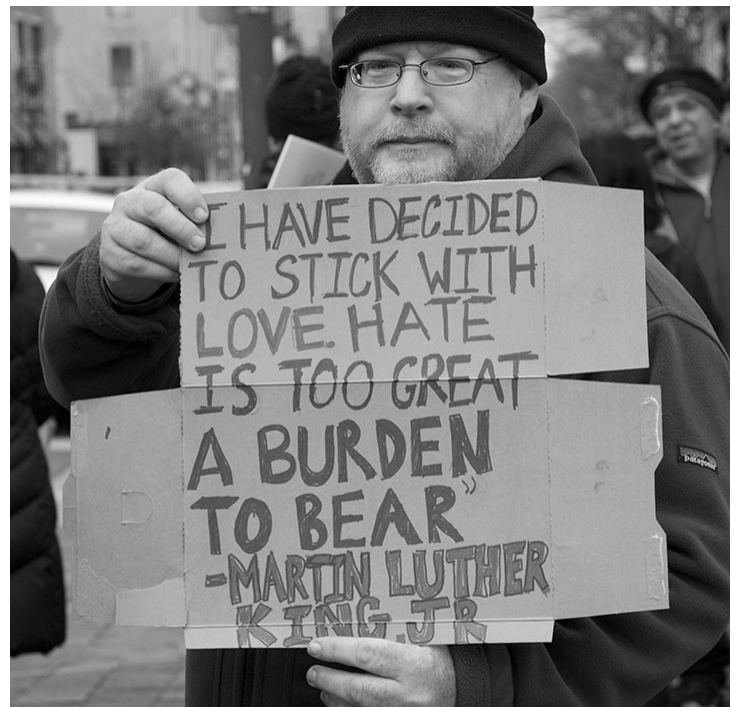 I HAVE DECIDED
TO STICK WITH
LOVE. HATE
IS TOO GREAT
A BURDEN
TO BEAR"
-MARTIN LUTHER
KING, JR
patagonia